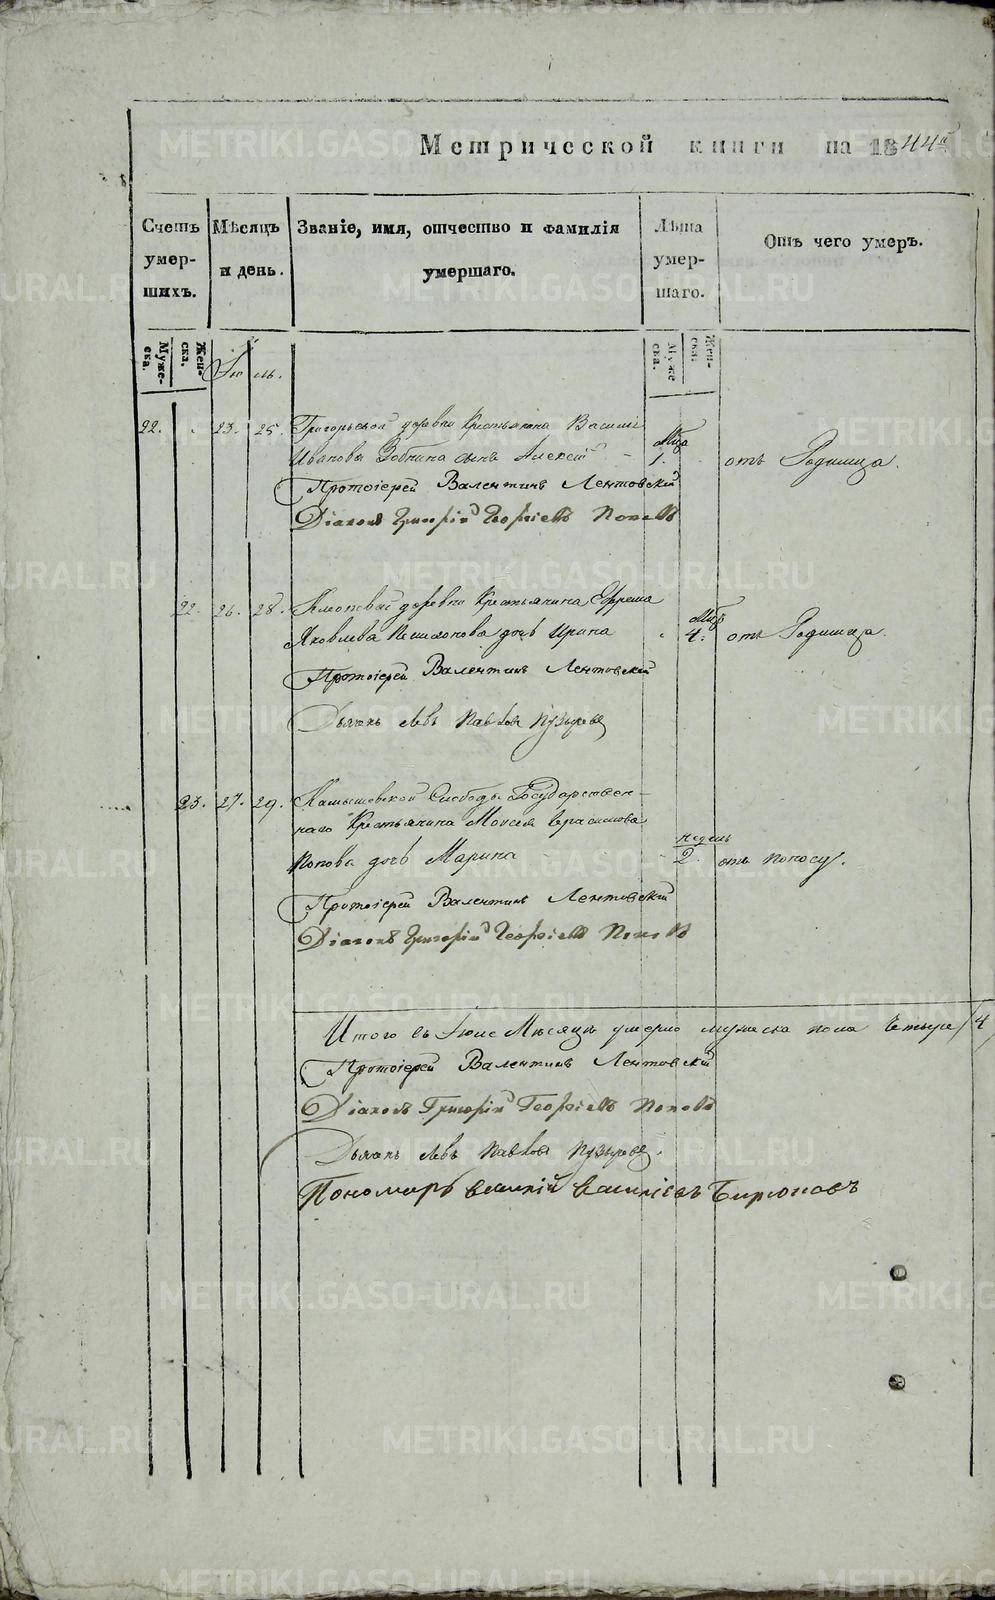 Метрической книги на 1844й
Счетъ умершихъ.
Мѣсяцъ и день.
Званіе, имя, отчество и фамилія умершаго.
Лѣта умершаго.
Отъ чего умеръ.
Мужеска.
Женска.
Іюль.
Мужеска.
Женска.
22. 23. 25. Григорьевской деревни Крестьянина Василія
Иванова Зобнина сынъ Алексей 1. мца отъ Родимца.
Протоіерей Валентинъ Лентовскій
Діаконъ Григорій Георгіевъ Поповъ
22. 26. 28. деревни Крестьянина Ефрема
Яковлева дочь Ирина 4. мцъ отъ Родимца.
Протоіерей Валентинъ Лентовскій
Дьячокъ Левъ Павловъ Пузыревъ
23. 27. 29. Камышевской Слободы Государствен-
наго Крестьянина Моисея Герасимова
Попова дочь Марина 2. недель отъ поносу.
Протоіерей Валентинъ Лентовскій
Діаконъ Григорій Георгіевъ Поповъ
Итого въ Іюле Мѣсяцѣ умерло мужеска пола Четыре /4/
Протоіерей Валентинъ Лентовскій
Діаконъ Григорій Георгіевъ Поповъ
Дьячокъ Левъ Павловъ Пузыревъ.
Пономарь Василій Василіевъ Бирюковъ
METRIKI.GASO-URAL.RU